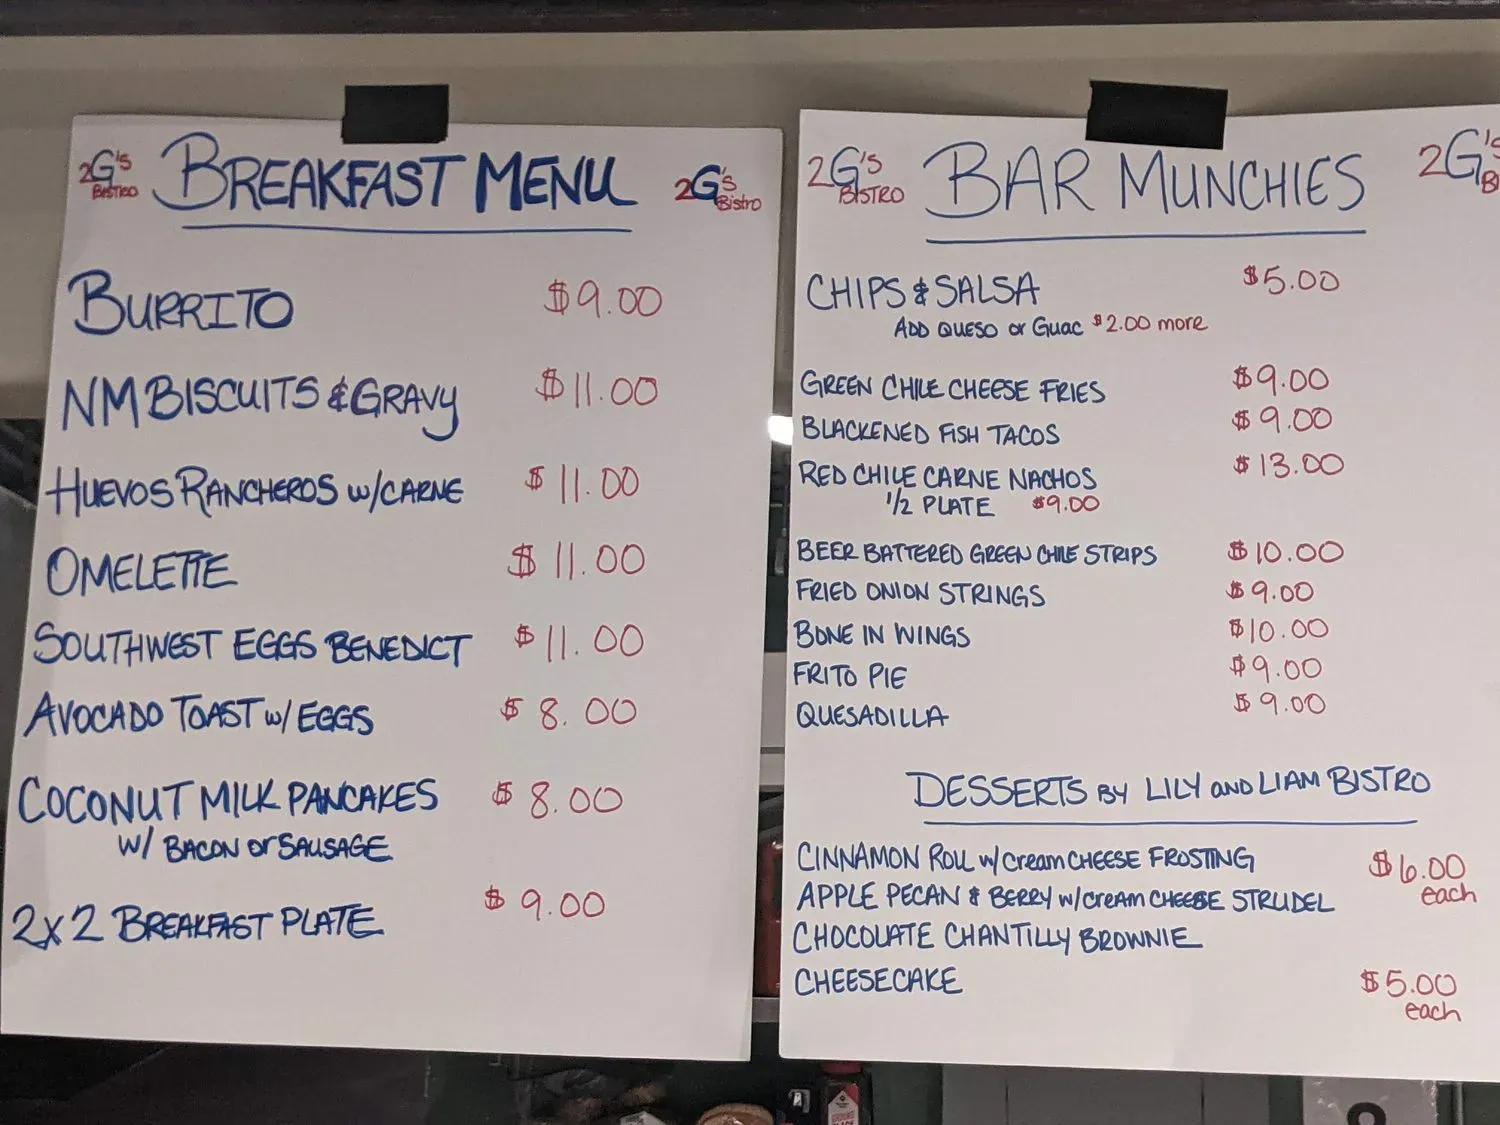 2G's Bistro BREAKFAST MENU 2G's Bistro
BURRITO $9.00
NM BISCUITS & GRAVY $11.00
HUEVOS RANCHEROS w/CARNE $11.00
OMELETTE $11.00
SOUTHWEST EGGS BENEDICT $11.00
AVOCADO TOAST w/ EGGS $8.00
COCONUT MILK PANCAKES $8.00
w/ BACON or SAUSAGE
2x2 BREAKFAST PLATE $9.00
2G's BISTRO BAR MUNCHIES 2G's
CHIPS & SALSA $5.00
ADD QUESO or GUAC $2.00 more
GREEN CHILE CHEESE FRIES $9.00
BLACKENED FISH TACOS $9.00
RED CHILE CARNE NACHOS $13.00
1/2 PLATE $9.00
BEER BATTERED GREEN CHILE STRIPS $10.00
FRIED ONION STRINGS $9.00
BONE IN WINGS $10.00
FRITO PIE $9.00
QUESADILLA $9.00
DESSERTS BY LILY and LIAM BISTRO
CINNAMON ROLL w/cream CHEESE FROSTING $6.00
APPLE PECAN & BERRY w/cream CHEESE STRUDEL each
CHOCOLATE CHANTILLY BROWNIE
CHEESECAKE $5.00
each